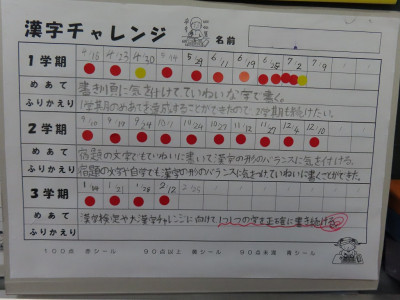 漢字チャレンジ
名前
1学期 4/15 4/23 4/30 5/29 6/11 6/19 7/2 7/9
めあて 書き順に気を付けてていねいな字で書く。
ふりかえり 1学期のめあてを達成することができたので2学期も続けたい。
2学期 9/24 10/7 11/12 11/27 12/4 12/10
めあて 宿題の文字でもていねいに書いて漢字の形のバランスに気を付ける。
ふりかえり 宿題の文字や自学でも漢字の形のバランスに気をつけていねいに書くことができた。
3学期 1/21 1/28 2/12
めあて 漢字検定や大漢字チャレンジに向けて1つ1つの字を正確に書き続ける
ふりかえり
100点 赤シール 90点以上 黄シール 90点未満 青シール